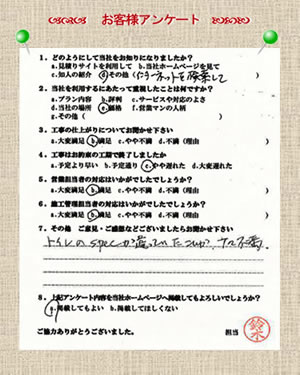 お客様アンケート
1．どのようにして当社をお知りになりましたか？
a.見積りサイトを利用して b.当社ホームページを見て
c.知人の紹介 d.その他（ ）
2．当社を利用するにあたって重視したことは何ですか？
a.プラン内容 b.評判 c.サービスや対応のよさ
d.当社の場所 e.価格 f.営業マンの人柄
g.その他（ ）
3．工事の仕上がりについてお聞かせ下さい
a.大変満足 b.満足 c.やや不満 d.不満（理由 ）
4．工事はお約束の工期で終了しましたか
a.予定より早い b.予定通り c.やや遅れた d.大変遅れた
5．営業担当者の対応はいかがでしたでしょうか？
a.大変満足 b.満足 c.やや不満 d.不満（理由 ）
6．施工管理担当者の対応はいかがでしたでしょうか？
a.大変満足 b.満足 c.やや不満 d.不満（理由 ）
7．その他 ご意見・ご感想などございましたらお聞かせ下さい
トイレのspecが違っていた
8．上記アンケート内容を当社ホームページへ掲載してもよろしいでしょうか？
a.掲載してもよい b.掲載してほしくない
ご協力ありがとうございました。 担当 鈴木